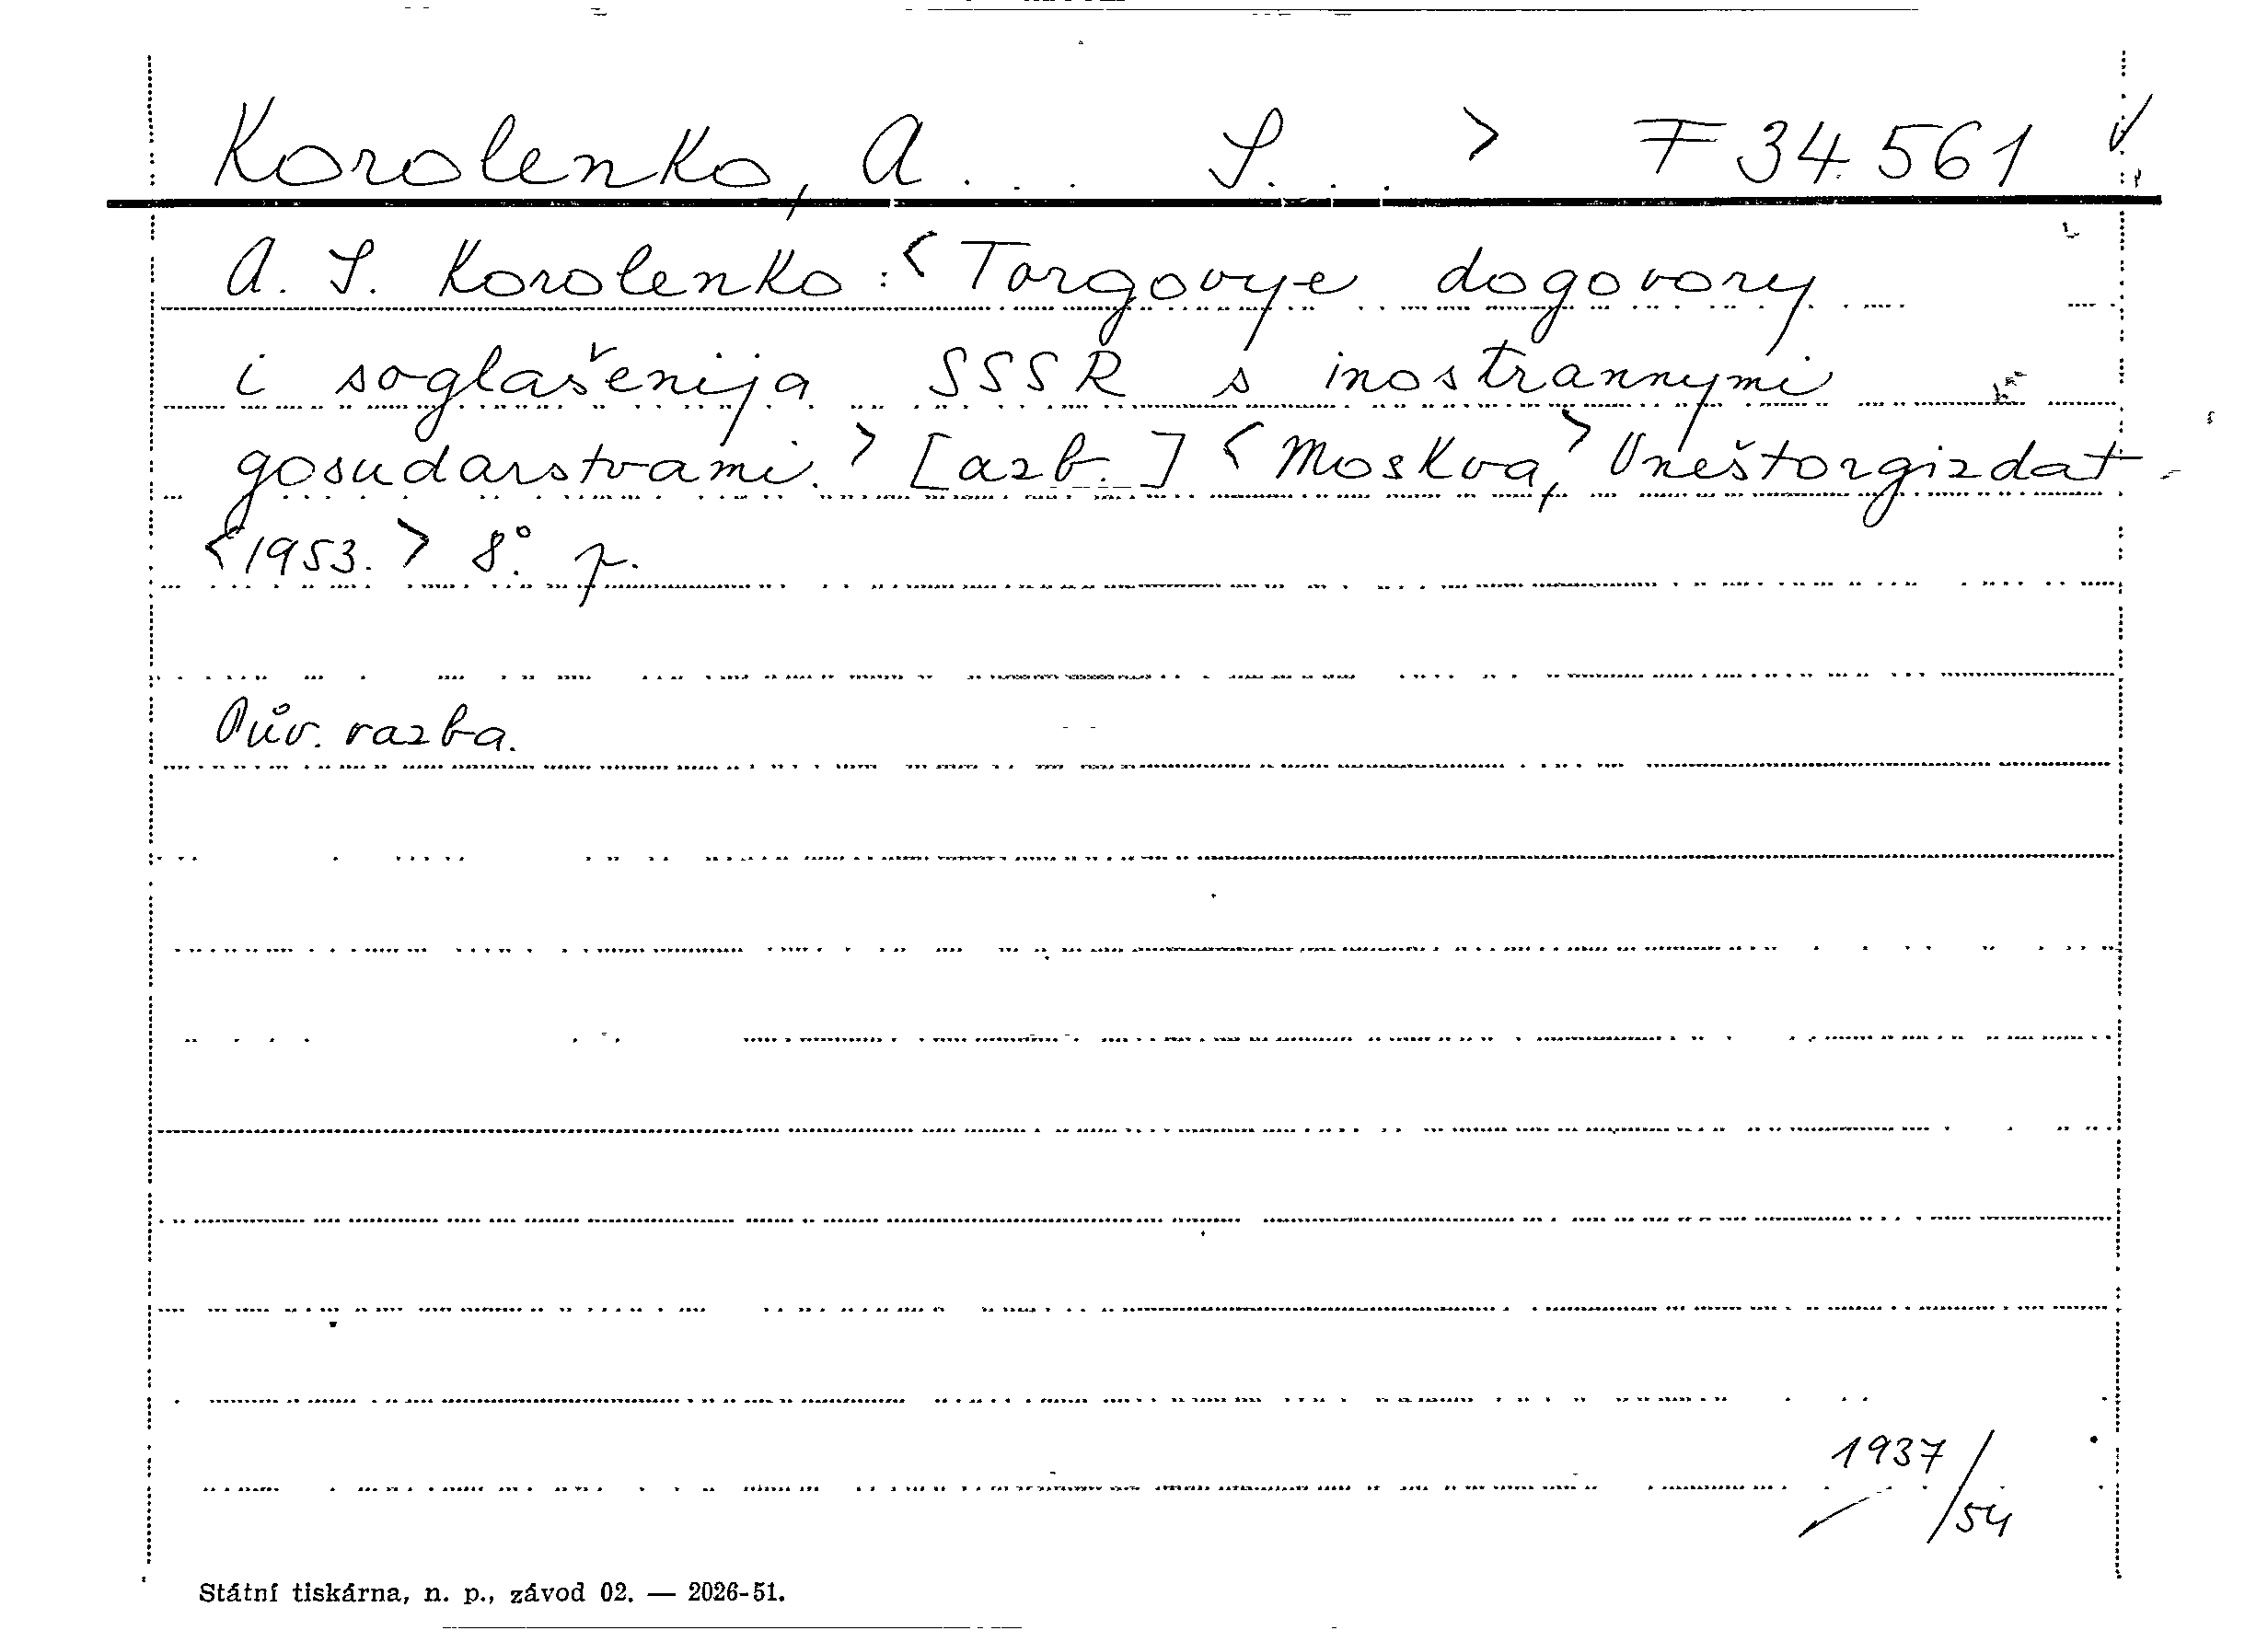 Korolenko, A... S...> F 34.561
A. S. Korolenko: <Torgovye dogovory
i soglašenija SSSR s inostrannymi
gosudarstvami.> [azb.] <Moskva,> Vneštorgizdat
<1953.> 8°. p.
Pův. vazba.
1937/
/54
Státní tiskárna, n. p., závod 02. — 2026-51.